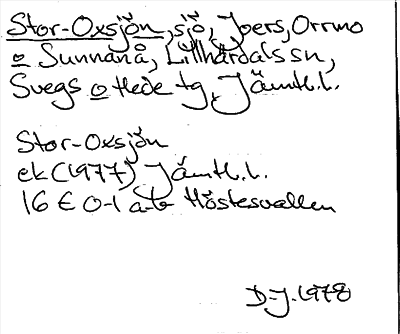 Stor-Oxsjön, sjö, Joers, Orrmo
o Sunnanå, Lillhärdals sn,
Svegs o Hede tg, Jämtl.l.
Stor-Oxsjön
ek (1977) Jämtl.l.
16 E 0-1 a-b Höstesvallen
D-J. 1978